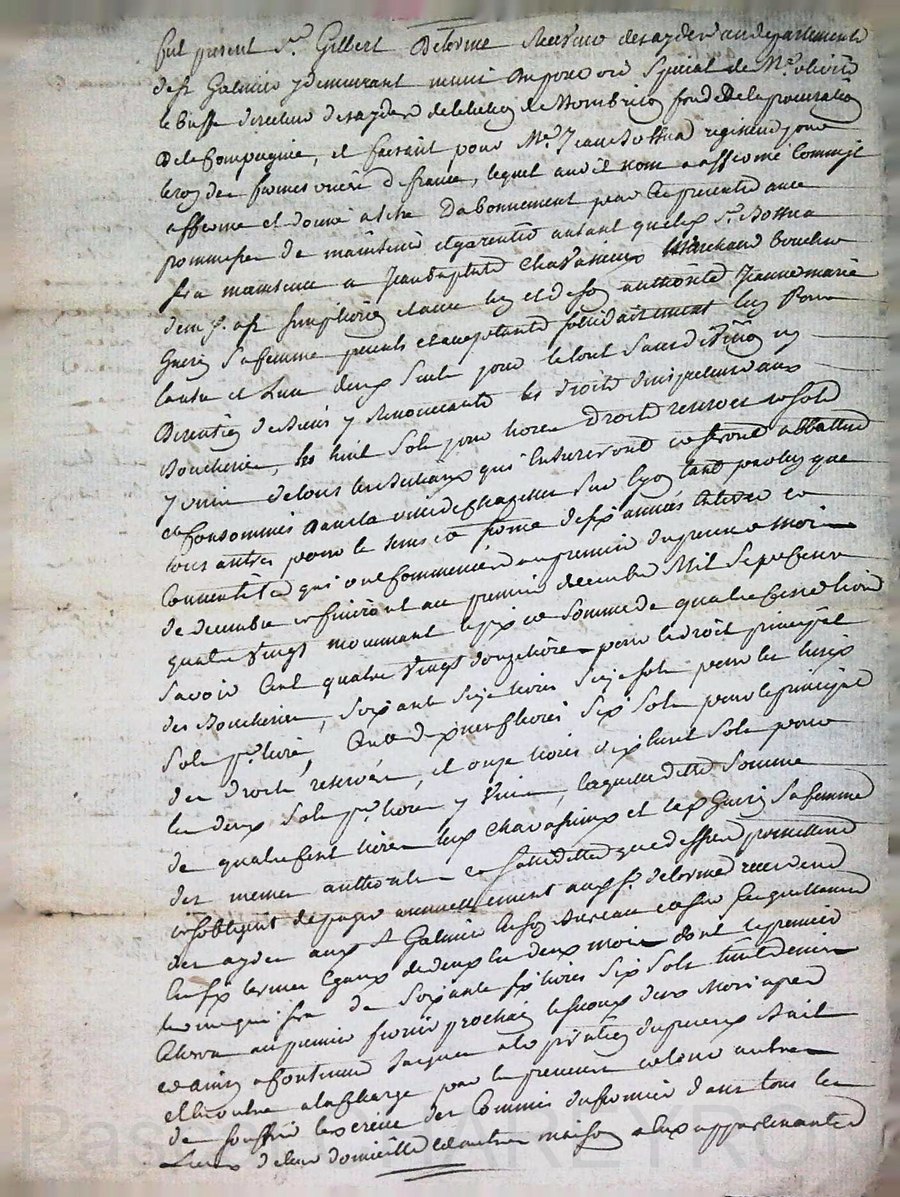 fut present Sr. Gilbert Delorme Receveur des aydes au departement
de st Galmier y demeurant muni du pouvoir special de Mr. olivier
le Buffe directeur des aydes de lelection de Montbrison fondé de la procuration
De la Compagnie, et faisant pour Me. Jean Bossua regisseur pour
le roy des fermes unies de france, lequel audit nom a afferme
afferme et donné a titre Dabonnement par les presentes avec
promesse de maintenir et garentir autant que led. Sr. Bossua
sera maintenu a Jean baptiste Chavassieux Marchand Boucher
dem.t a st simphorien et avec luy et de son authorité Jeanne marie
Guerin sa femme presents et acceptants solidairement lun pour
lautre et Lun deux Seul pour le tout Sans division ny
Discution de Biens y Renoncants les droits dinspecteurs aux
Boucheries, les huit Sols pour livre Droits reservés et Sols
y unis de tous les Bestiaux qui Entreront et seront abbattus
et Consommés dans la ville de st Sur Lyon tant par luy que
tous autres pour le tems et terme de six années Entieres et
Consecutives qui ont Commencées au premier du present mois
de decembre et finiront au premier decembre Mil Sept Cent
quatre vingt moyennant le prix et Somme de quatre Cents livres
Savoir Cent quatre vingt douze livres pour le droit principal
des Boucheries, soixante Seize livres Seize sols pour les huit
Sols pr. livre, Cent dix neuf livres Six Sols pour le principal
des droits reservés, et onze livres dix huit Sols pour
les deux Sols pr. livre y Unis, laquelle ditte Somme
de quatre Cent livres led. Chavassieux et lad. Guerin sa femme
des memes authorités et solidités que dessus promettent
et sobligent de payer annuellement aud. sr. delorme receveur
des aydes aud. St Galmier En son Bureau
En six termes Egaux de deux En deux mois dont le premier
qui sera de Soixante six livres Six Sols huit deniers
Echera au premier fevrier prochain le second deux Mois apres
et Ainsy a Continuer Jusques a lexpiration du present Bail
et En outre a la Charge par les preneurs
de souffrir lexercice des Commis du fermier dans tous les
Lieux de leur domicille et autres maisons a Eux appartenantes
Pascal CHAREYRON